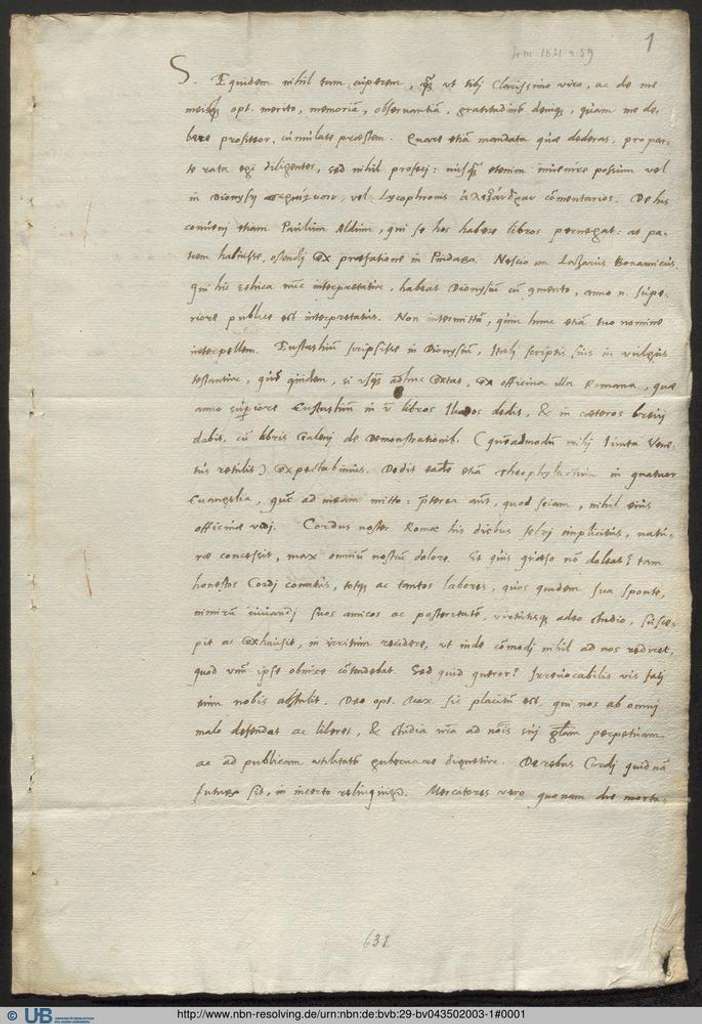 1
S. Equidem nihil tam cuperem, q̃ ut tibi Clarissimo viro, ac de me
meisq; opt. merito, memoriã, observantiã, gratitudinẽ deniq;, quam me de-
bere profiteor, cumulate præstem. Quare etiã mandata quæ dederas, pro par-
te rata egi diligenter, sed nihil profeci: nusq̃ etenim invenire possum vel
in Dionysij vel Lycophronis commentarios. De his
conveni etiam Paulum Aldum, qui se hos habere libros pernegat: at pa-
trem habuisse, ostendi ex præfatione in Pindarum. Nescio an Lazarus Bonamicus
qui hic ethica nũc interpretatur, habeat Dionysiũ cũ cõmento, anno n. supe-
riore publice est interpretatus. Non intermittã, quin hunc etiã tuo nomine
interpellem. Eustathiũ scripsisse in Dionysiũ, Itali scriptis suis in vulgus
testantur, quẽ quidem, si usq; adhuc extat, ex officina illa Romana, quæ
anno superiore Eustathiũ in v libros Iliados dedit, & in cæteros brevi
dabit, cũ libris Galeni de Demonstrationib. (quẽadmodũ mihi Iunta Vene-
tus retulit) expectabimus. Dedit eadẽ etiã Theophylactum in quatuor
Evangelia, quẽ ad mitto: p̃terea aũt, quod sciam, nihil eius
officinæ vidi. Cordus noster Romæ his diebus febri implicitus, natu-
ræ concessit, max omniũ nostrũ dolore. Et quis quæso nõ doleat? tam
honestos Cordi conatus, totq; ac tantos labores, quos quidem sua sponte,
nimirũ iuvandi suos amicos ac posteritatẽ, virtutisq; adeo studio, susce-
pit ac exhausit, in irritum recidere, ut inde cõmodi nihil ad nos redeat,
quod unũ ipse obnixe cõtendebat. Sed quid queror? Irrevocabilis vis fati
eum nobis abstulit. Deo opt. Max. sic placitũ est, qui nos ab omni
malo defendat ac liberet, & studia nr̃a ad nõis sui gl̃am perpetuam
ac ad publicam utilitatẽ gubernare dignetur. De rebus Cordi quid nã
futurũ sit, in incerto relinquitur. Mercatores vero quonam die mortu-
631
UB
http://www.nbn-resolving.de/urn:nbn:de:bvb:29-bv043502003-1#0001